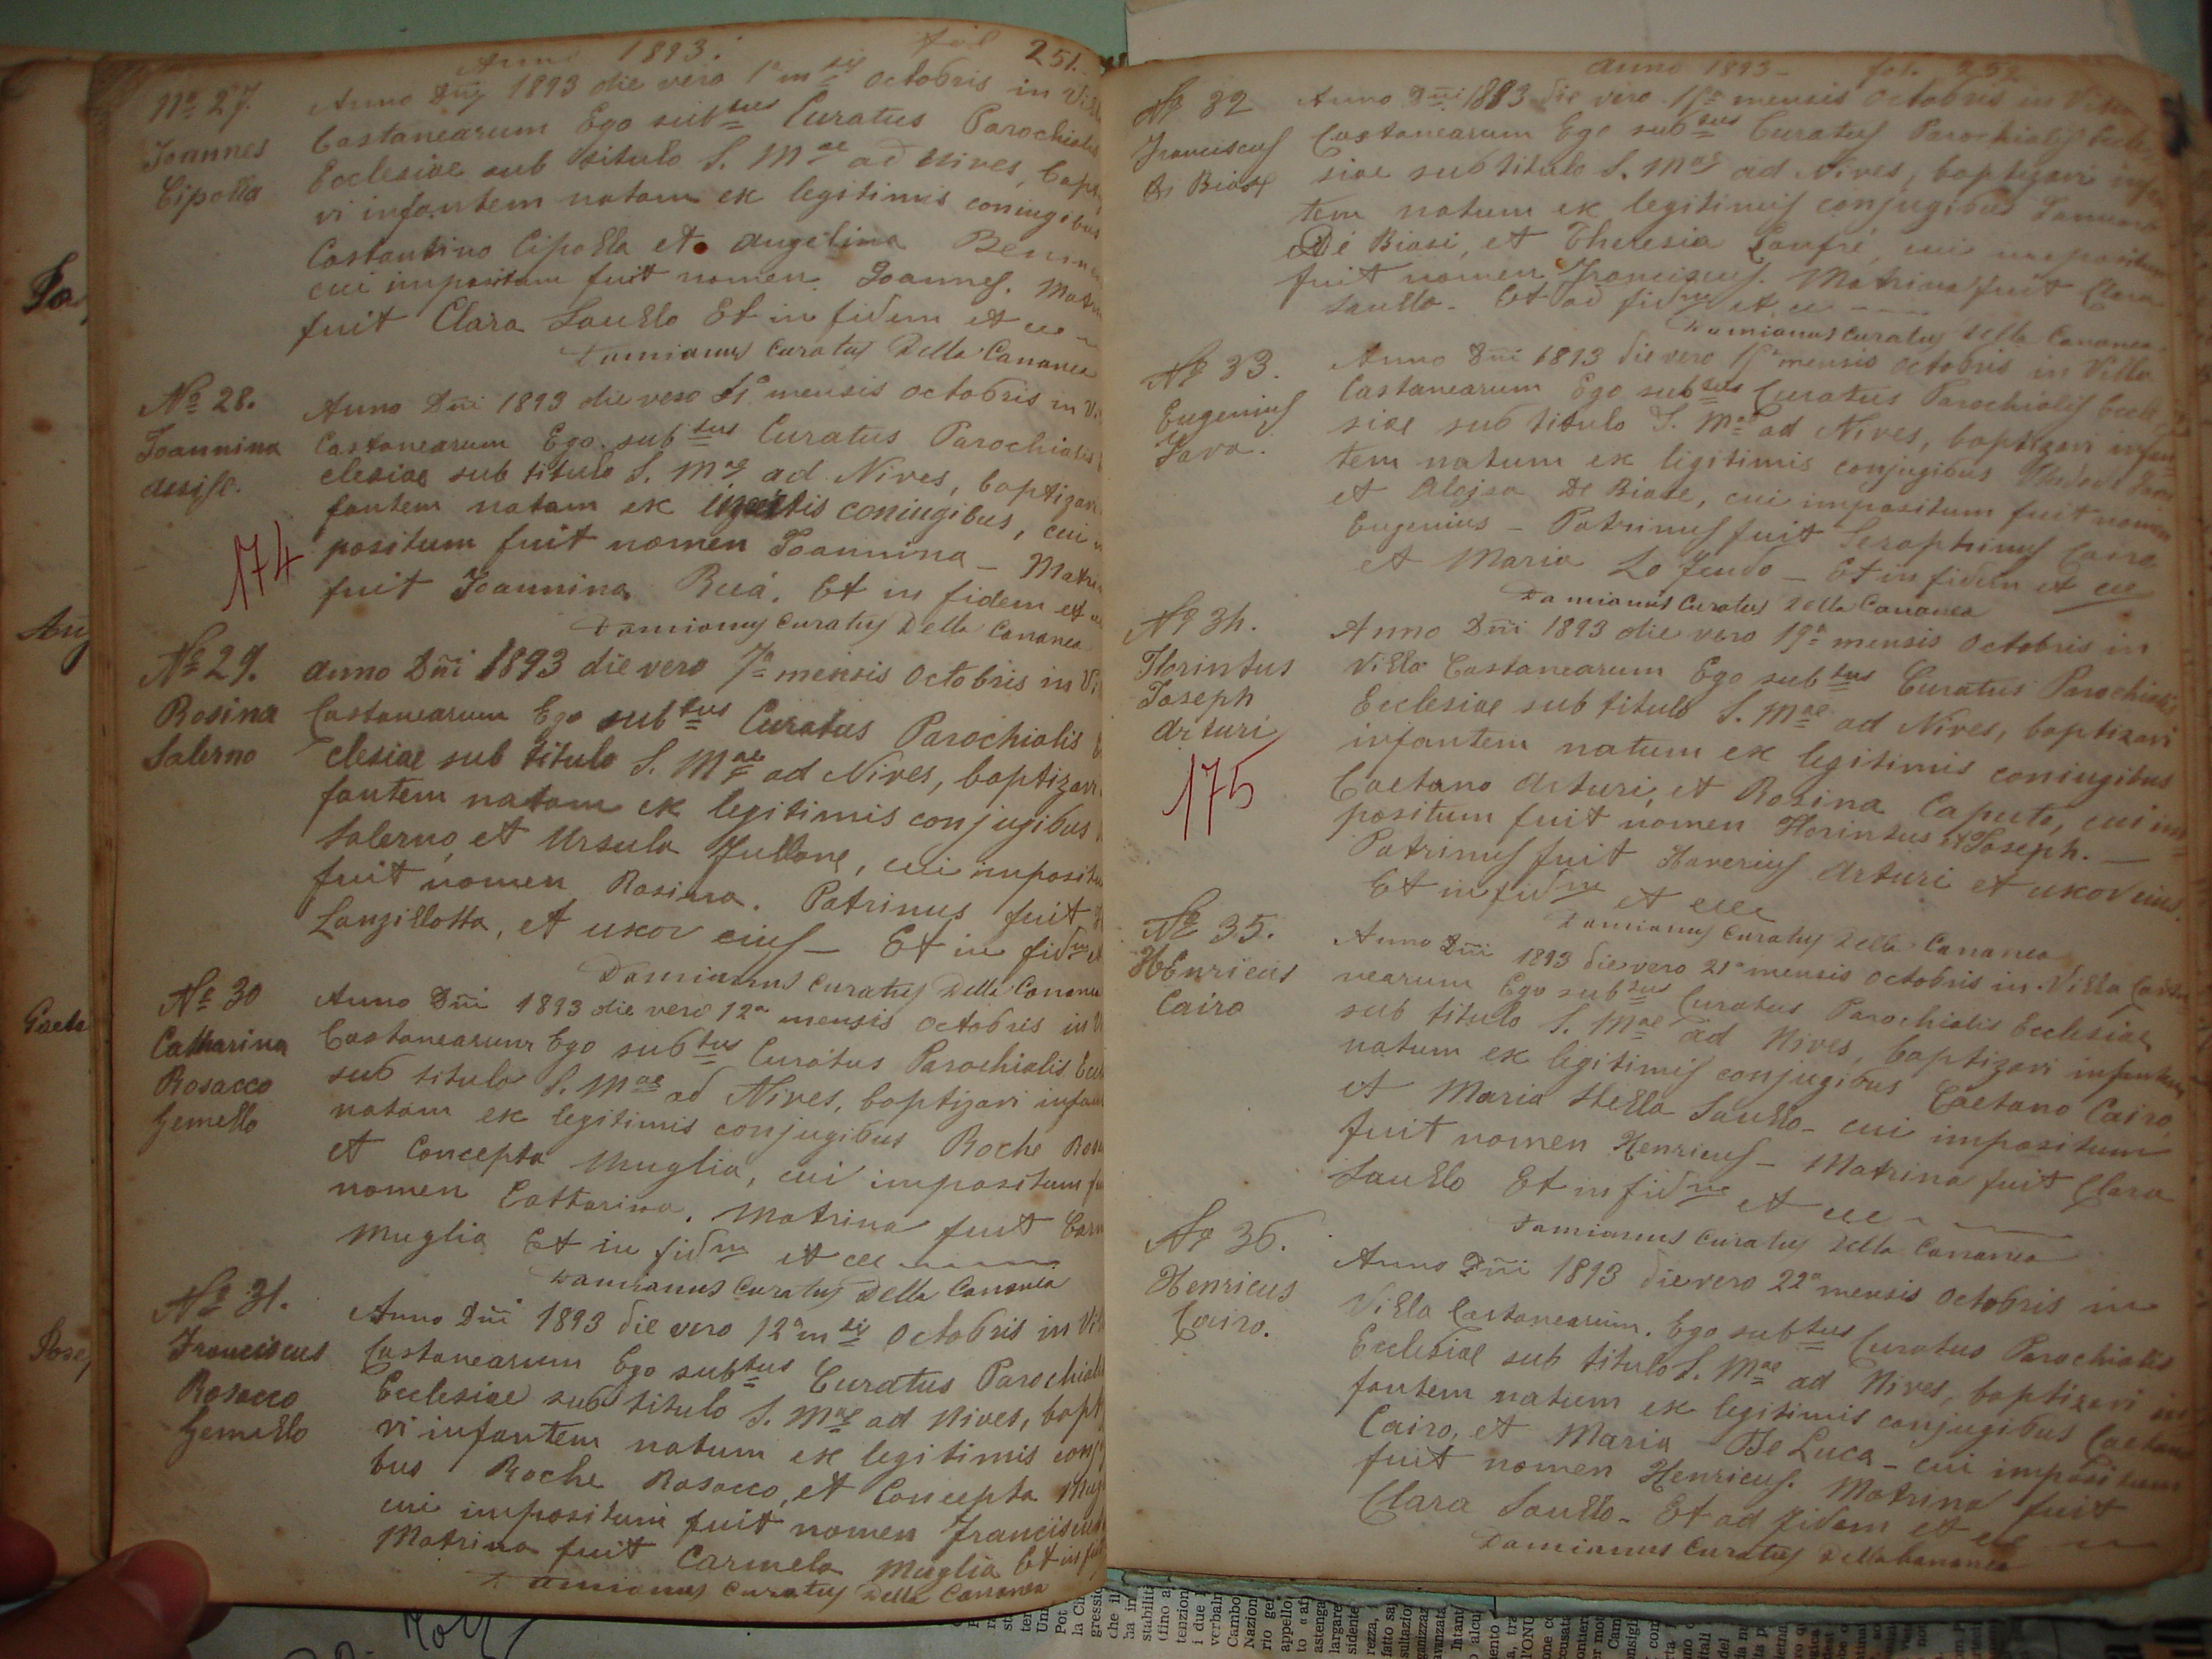 Anno 1893. fol 251.
No 27.
Joannes
Cipolla
Anno Dni 1893 die vero 1a m sis Octobris in Villa
Castanearum Ego sub tus Curatus Parochialis
Ecclesiae sub titulo S. Mae ad Nives, bapti
vi infantem natam ex legitimis coniugibus
Costantino Cipolla et Angelina
cui impositum fuit nomen Joannes. Matri
fuit Clara Saullo Et in fidem et cce
Damianus Curatus Della Cananea
No 28.
Joannina
174
Anno Dni 1893 die vero mensis Octobris in Vi
Castanearum Ego sub tus Curatus Parochialis
clesiae sub titulo S. Mae ad Nives, baptizavi
fantem natam ex coniugibus, cui
positum fuit nomen Joannina - Matri
fuit Joannina Buá. Et in fidem et
Damianus Curatus Della Cananea
No 29.
Rosina
Salerno
Anno Dni 1893 die vero 7a mensis Octobris in Vi
Castanearum Ego sub tus Curatus Parochialis
clesiae sub titulo S. Mae ad Nives, baptizavi
fantem natam ex legitimis conjugibus
Salerno, et Ursula Fullone, cui imposit
fuit nomen Rosina. Patrinus fuit
Lanzillotta, et uxor eius - Et in fidm
Damianus Curatus Della Cananea
No 30
Catharina
Rosacco
Gemello
Anno Dni 1893 die vero 12a mensis Octobris in
Castanearum Ego sub tus Curatus Parochialis Eccl
sub titulo S. Mae ad Nives, baptizavi infan
natam ex legitimis conjugibus Roche Rosa
et Concepta Muglia, cui impositum fu
nomen Cattarina. Matrina fuit Carm
Muglia Et in fidm et cce
Damianus Curatus Della Cananea
No 31.
Franciscus
Rosacco
Gemello
Anno Dni 1893 die vero 12a m sis Octobris in Vi
Castanearum Ego sub tus Curatus Parochiali
Ecclesiae sub titulo S. Mae ad Nives, bapt
vi infantem natum ex legitimis conj
bus Roche Rosacco, et Concepta Mug
cui impositum fuit nomen Franciscus
Matrina fuit Carmela Muglia Et in fid
Damianus Curatus Della Cananea
Anno 1893 - fol. 252
No 32
Franciscus
Di Biase
Anno Dni 1893 die vero mensis Octobris in Villa
Castanearum Ego sub tus Curatus Parochialis Eccle
siae sub titulo S. Mae ad Nives, baptizavi infan
tem natum ex legitimis conjugibus
De Biasi, et Theresia, cui impositum
fuit nomen Franciscus. Matrina fuit Clara
Saullo - Et ad fidm et cce
Damianus Curatus Della Cananea
No 33.
Eugenius
Fava.
Anno Dni 1893 die vero mensis Octobris in Villa
Castanearum Ego sub tus Curatus Parochialis Eccle
siae sub titulo S. Mae ad Nives, baptizavi infan
tem natum ex legitimis conjugibus
et De Biase, cui impositum fuit nomen
Eugenius - Patrinus fuit Seraphinus Cairo
et Maria Lo Feudo - Et in fidem et cce
Damianus Curatus Della Cananea
No 34.
Florintus
Joseph
Arturi
175
Anno Dni 1893 die vero 19a mensis Octobris in
Villa Castanearum Ego sub tus Curatus Parochialis
Ecclesiae sub titulo S. Mae ad Nives, baptizavi
infantem natum ex legitimis coniugibus
Caetano Arturi, et Rosina Caputo, cui im
positum fuit nomen Florintus et Joseph. -
Patrinus fuit Xaverius Arturi et uxor eius.
Et in fidm et cce
Damianus Curatus Della Cananea
No 35.
Henricus
Cairo
Anno Dni 1893 die vero 21a mensis Octobris in Villa Casta
nearum Ego sub tus Curatus Parochialis Ecclesiae
sub titulo S. Mae ad Nives, baptizavi infantem
natum ex legitimis conjugibus Caetano Cairo,
et Maria Stella Saullo - cui impositum
fuit nomen Henricus - Matrina fuit Clara
Saullo Et in fidm et cce
Damianus Curatus Della Cananea
No 36.
Henricus
Cairo.
Anno Dni 1893 die vero 22a mensis Octobris in
Villa Castanearum. Ego sub tus Curatus Parochialis
Ecclesiae sub titulo S. Mae ad Nives, baptizavi in
fantem natum ex legitimis conjugibus Caetano
Cairo, et Maria De Luca - cui impositum
fuit nomen Henricus. Matrina fuit
Clara Saullo - Et ad fidem et cce
Damianus Curatus Della Cananea